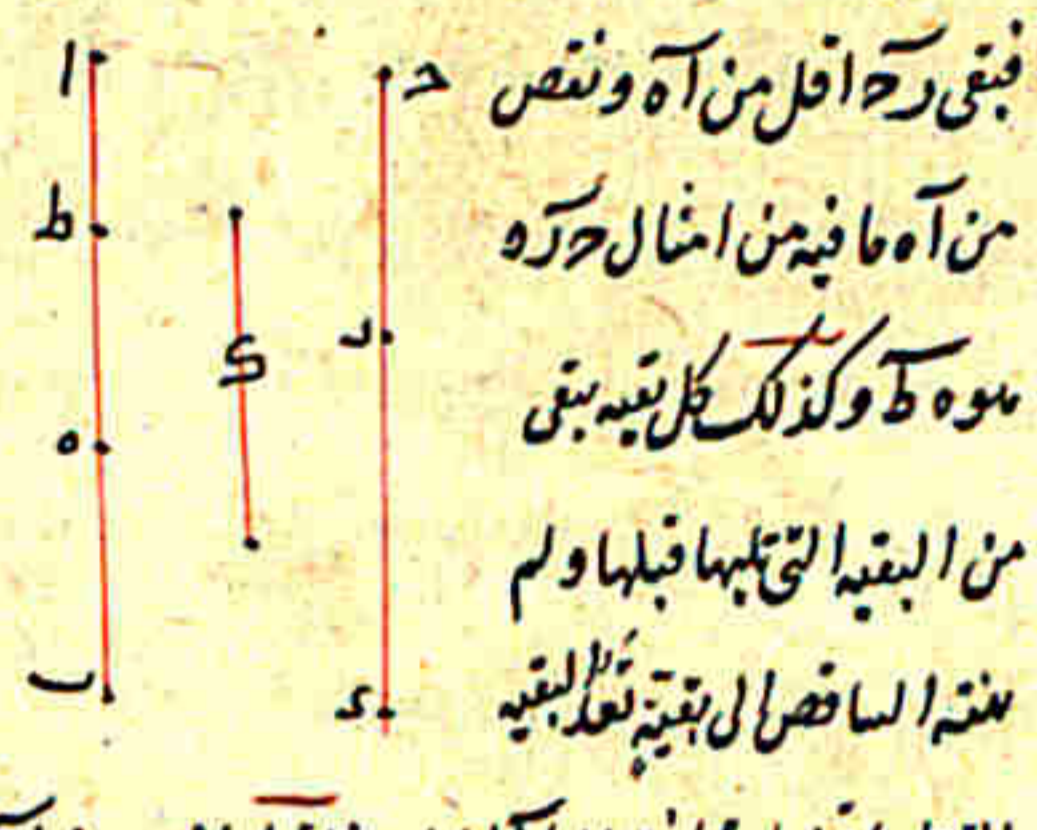 فبقى رح اقل من اه ونقص
من اه ما فيه من امثال ح ر ه
ه ط وكذلك كل بقيه بقى
من البقيه التى تليها قبلها ولم
الى بقية تعد البقيه
ا
ط
ه
ب
ح
ر
د